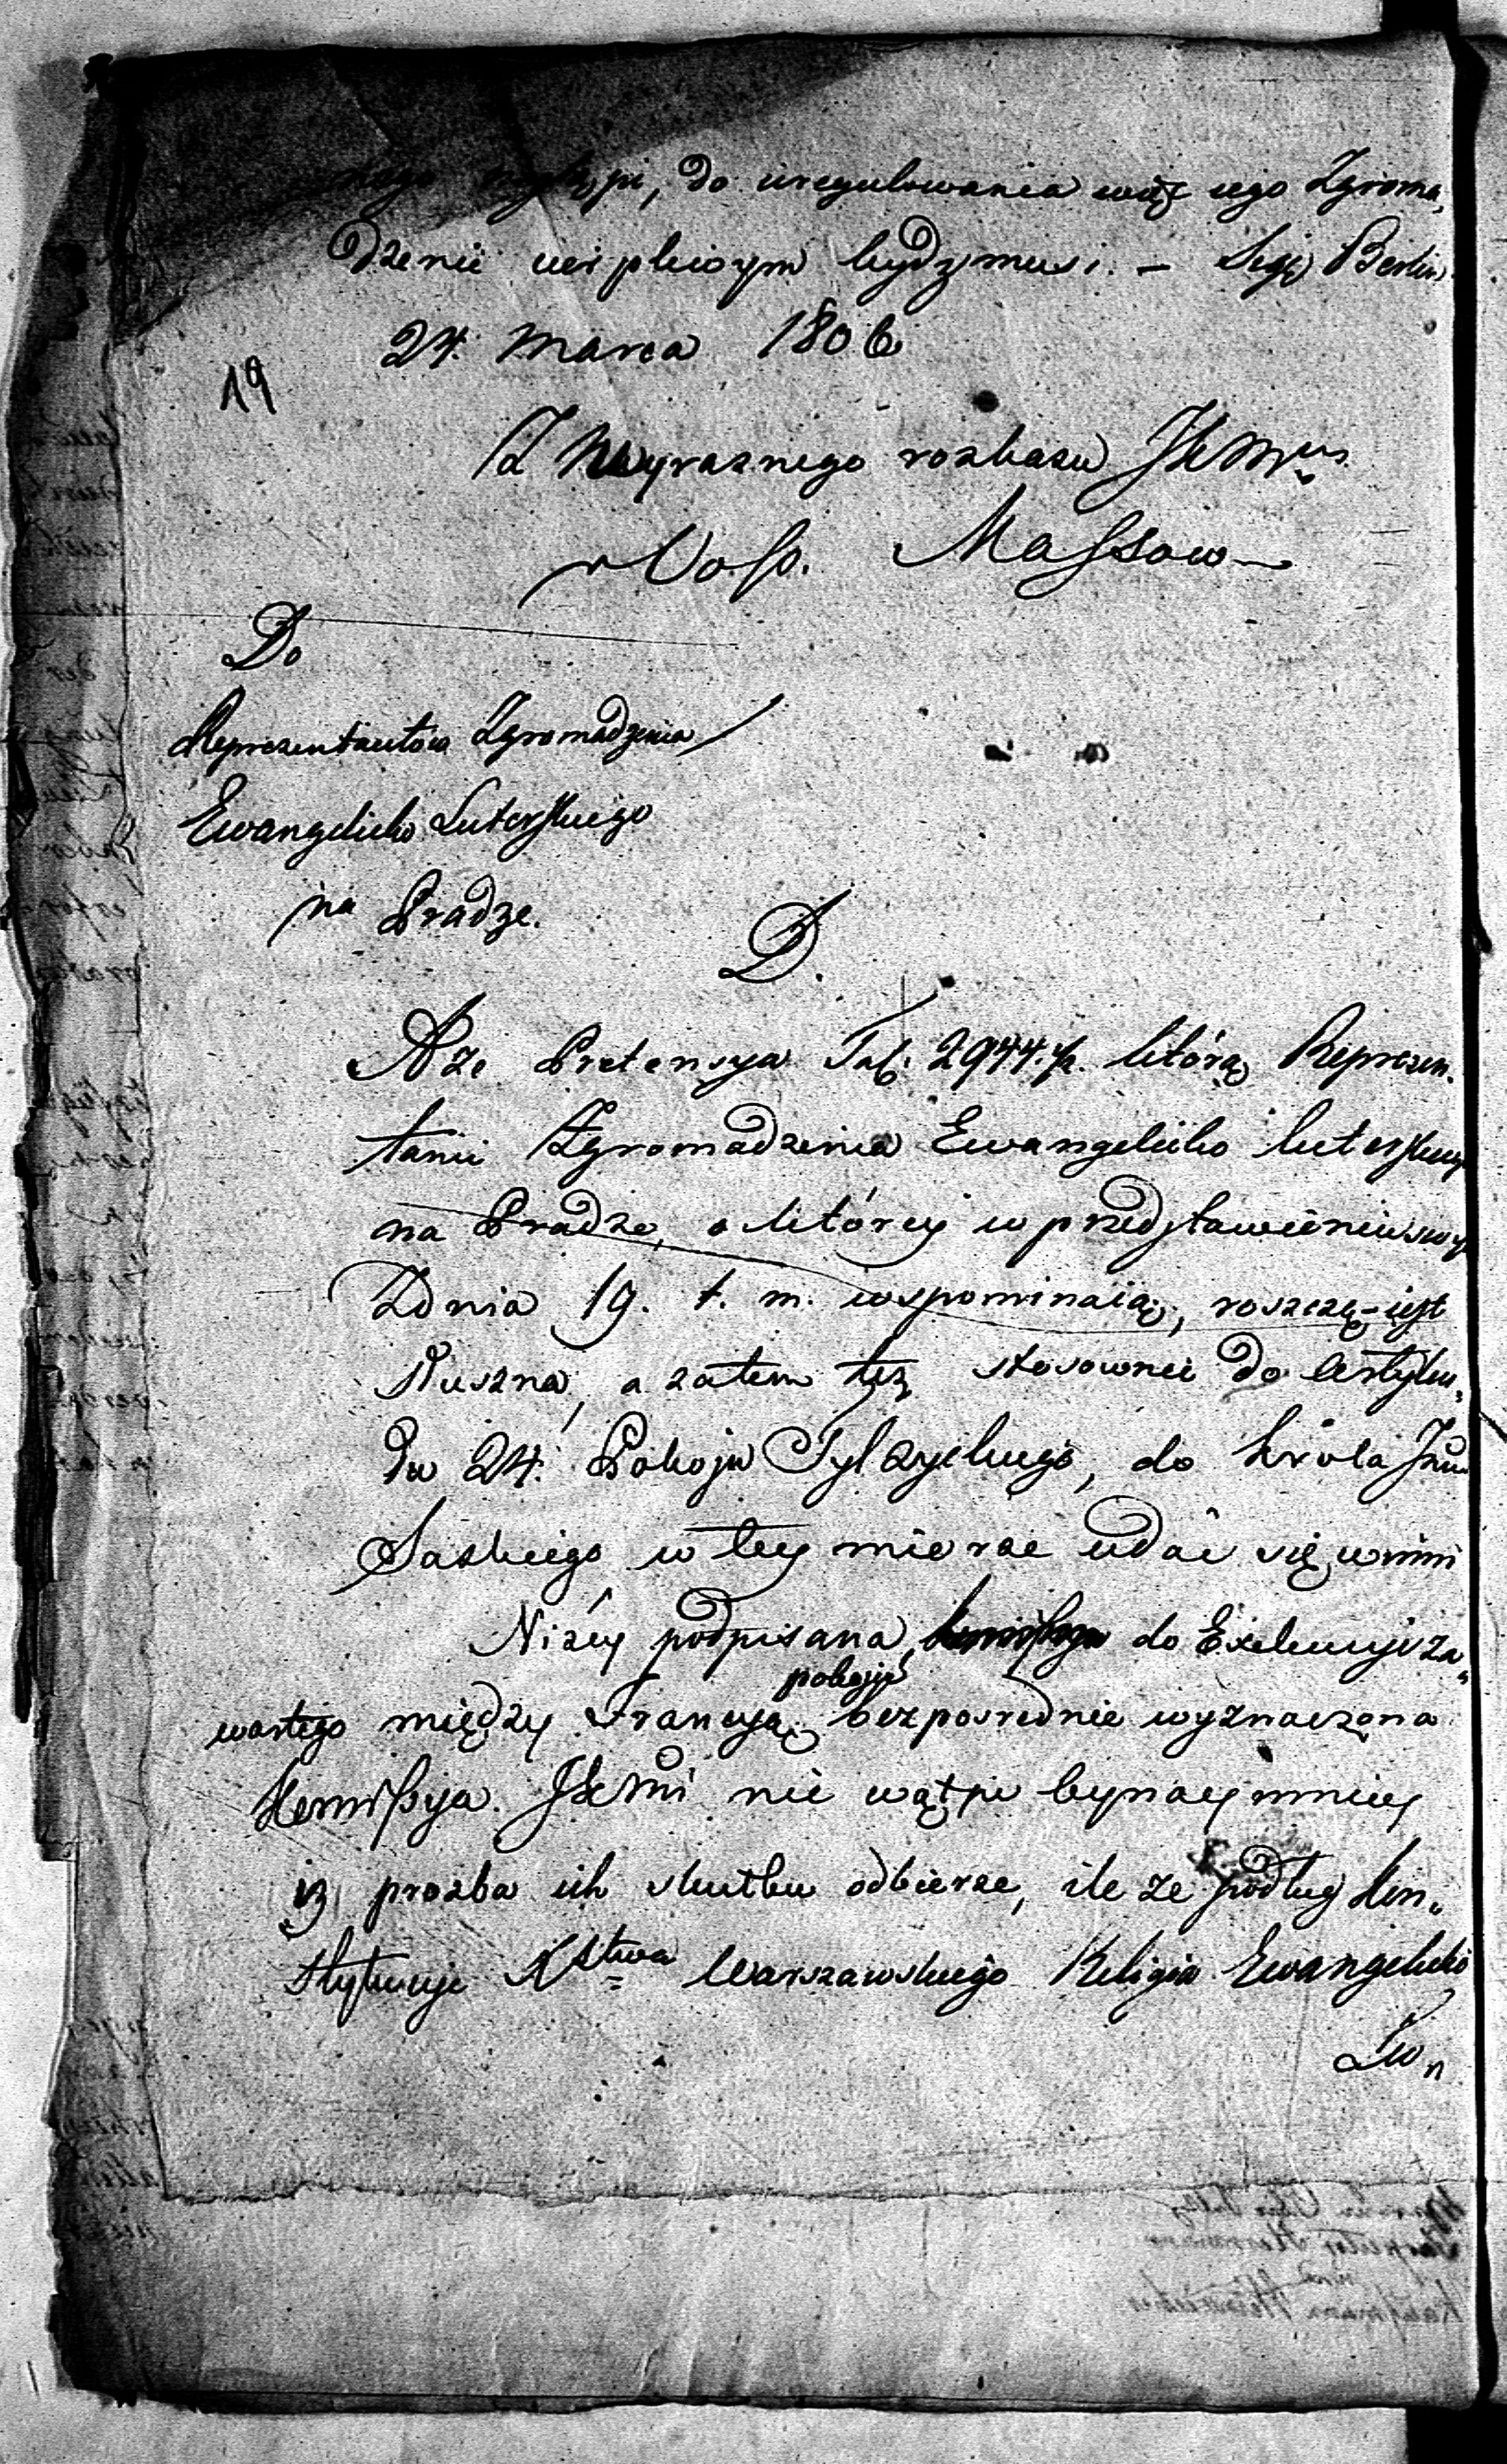 nastąpi, do uregulowania więc iego Zgroma,
dzenie cierpliwym bydz musi. – Sig: Berlin
24. Marca 1806
19
Z Wyraznego rozkazu JKMci
v Voss. Massow
Do
Reprezentantów Zgromadzenia
Ewangelicko Luterskiego
na Pradze.
D.
Aze Pretensya Tal. 2944. którą Reprezen.
tanci Zgromadzenia Ewangelicko luterskiego
na Pradze, o którey w przedstawieniu swym
Zdnia 19. t. m. wspominaią, roszczą – iest
Słuszna, a zatem też stosownie do artyku,
łu 24. Pokoju Tylzyckiego, do Króla Jmci
Saskiego w tey mierze udać się winni
Niżey podpisana do Exekucyi za„
pokoju
wartego między Francyą bezposrednie wyznaczona
Kommissya JKMci nie wątpi bynaymniey
iż prozba ich skutku odbierze, ile ze podług Kon„
stytucyi Xstwa Warszawskiego Religia Ewangelicko
Lu„